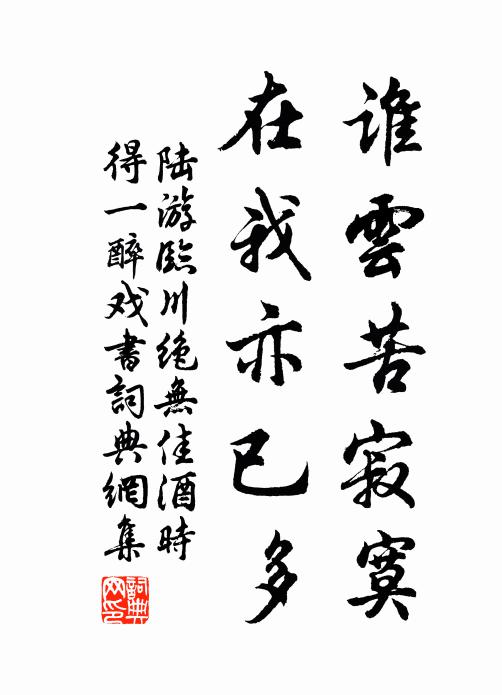 誰雲苦寂寞
在我亦已多
陆游臨川絶無佳酒時
得一醉戏書詞典網集
詞典网印